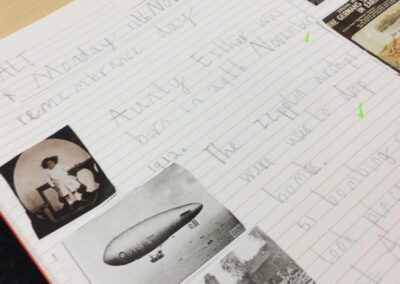 ALT
Monday 11th Nov
remembrance day
Aunty Esther was
born in 29th November
1912.
The zepplin airships
were used to drop
bombs.
51 bombing
took pla
THE GERMANS IN